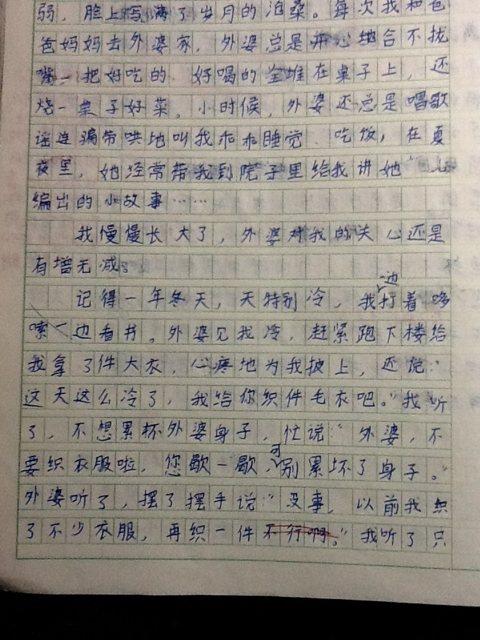 弱，脸上写满了岁月的沧桑。每次我和爸
爸妈妈去外婆家，外婆总是开心地合不拢
嘴一把好吃的、好喝的全堆在桌子上，还
烧一桌子好菜。小时候，外婆还总是唱歌
谣连骗带哄地叫我乖乖睡觉、吃饭，在夏
夜里，她经常带我到院子里给我讲她
编出的小故事……
我慢慢长大了，外婆对我的关心还是
有增无减。
记得一年冬天，天特别冷，我一边打着哆
嗦一边看书。外婆见我冷，赶紧跑下楼给
我拿了件大衣，心疼地为我披上，还说：“
这天这么冷了，我给你织件毛衣吧。”我听
了，不想累坏外婆身子，忙说“外婆，不
要织衣服啦，您歇一歇，可别累坏了身子。”
外婆听了，摆了摆手说“没事，以前我织
了不少衣服，再织一件不行啊。”我听了只